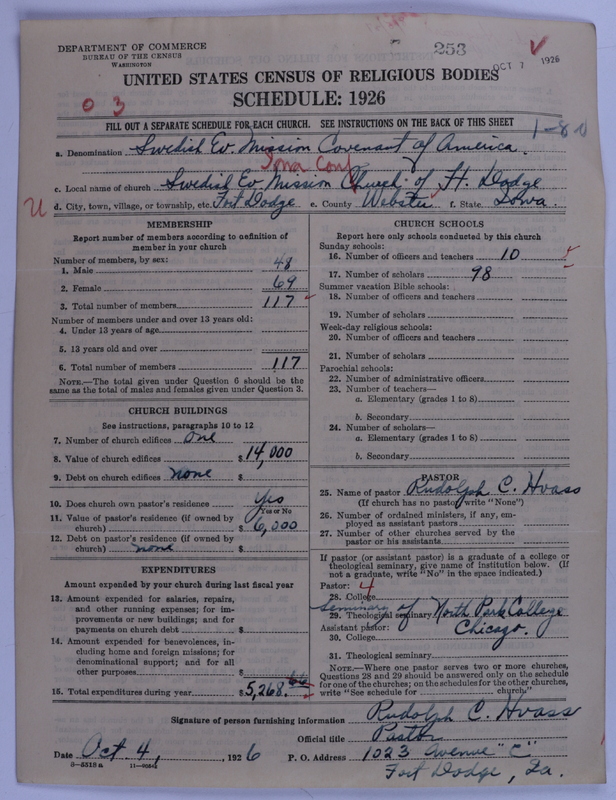 DEPARTMENT OF COMMERCE
BUREAU OF THE CENSUS
WASHINGTON
253
OCT 7 1926
UNITED STATES CENSUS OF RELIGIOUS BODIES
SCHEDULE: 1926
0 3
FILL OUT A SEPARATE SCHEDULE FOR EACH CHURCH. SEE INSTRUCTIONS ON THE BACK OF THIS SHEET
1-80
a. Denomination Swedish Ev. Mission Covenant of America
Iowa Conf
c. Local name of church Swedish Ev. Mission Church of Ft. Dodge
d. City, town, village, or township, etc. Fort Dodge e. County Webster f. State Iowa
MEMBERSHIP
Report number of members according to definition of member in your church
Number of members, by sex:
1. Male 48
2. Female 69
3. Total number of members 117
Number of members under and over 13 years old:
4. Under 13 years of age
5. 13 years old and over
6. Total number of members 117
NOTE.—The total given under Question 6 should be the same as the total of males and females given under Question 3.
CHURCH BUILDINGS
See instructions, paragraphs 10 to 12
7. Number of church edifices one
8. Value of church edifices $ 14,000
9. Debt on church edifices none $
10. Does church own pastor's residence Yes
Yes or No
11. Value of pastor's residence (if owned by church) $ 6,000
12. Debt on pastor's residence (if owned by church) none $
EXPENDITURES
Amount expended by your church during last fiscal year
13. Amount expended for salaries, repairs, and other running expenses; for improvements or new buildings; and for payments on church debt $
14. Amount expended for benevolences, including home and foreign missions; for denominational support; and for all other purposes $
15. Total expenditures during year $5,268.66
CHURCH SCHOOLS
Report here only schools conducted by this church
Sunday schools:
16. Number of officers and teachers 10
17. Number of scholars 98
Summer vacation Bible schools:
18. Number of officers and teachers
19. Number of scholars
Week-day religious schools:
20. Number of officers and teachers
21. Number of scholars
Parochial schools:
22. Number of administrative officers
23. Number of teachers—
a. Elementary (grades 1 to 8)
b. Secondary
24. Number of scholars—
a. Elementary (grades 1 to 8)
b. Secondary
PASTOR
25. Name of pastor Rudolph C. Hvass
(If church has no pastor write "None")
26. Number of ordained ministers, if any, employed as assistant pastors
27. Number of other churches served by the pastor or his assistants
If pastor (or assistant pastor) is a graduate of a college or theological seminary, give name of institution below. (If not a graduate, write "No" in the space indicated.)
Pastor: 4
28. College
29. Theological seminary Seminary of North Park College
Assistant pastor: Chicago.
30. College
31. Theological seminary
NOTE.—Where one pastor serves two or more churches, Questions 28 and 29 should be answered only on the schedule for one of the churches; on the schedules for the other churches, write "See schedule for church."
Signature of person furnishing information Rudolph C. Hvass
Official title Pastor
Date Oct 4, 1926 P. O. Address 1023 Avenue "C"
8-5518 a
Fort Dodge, Ia.